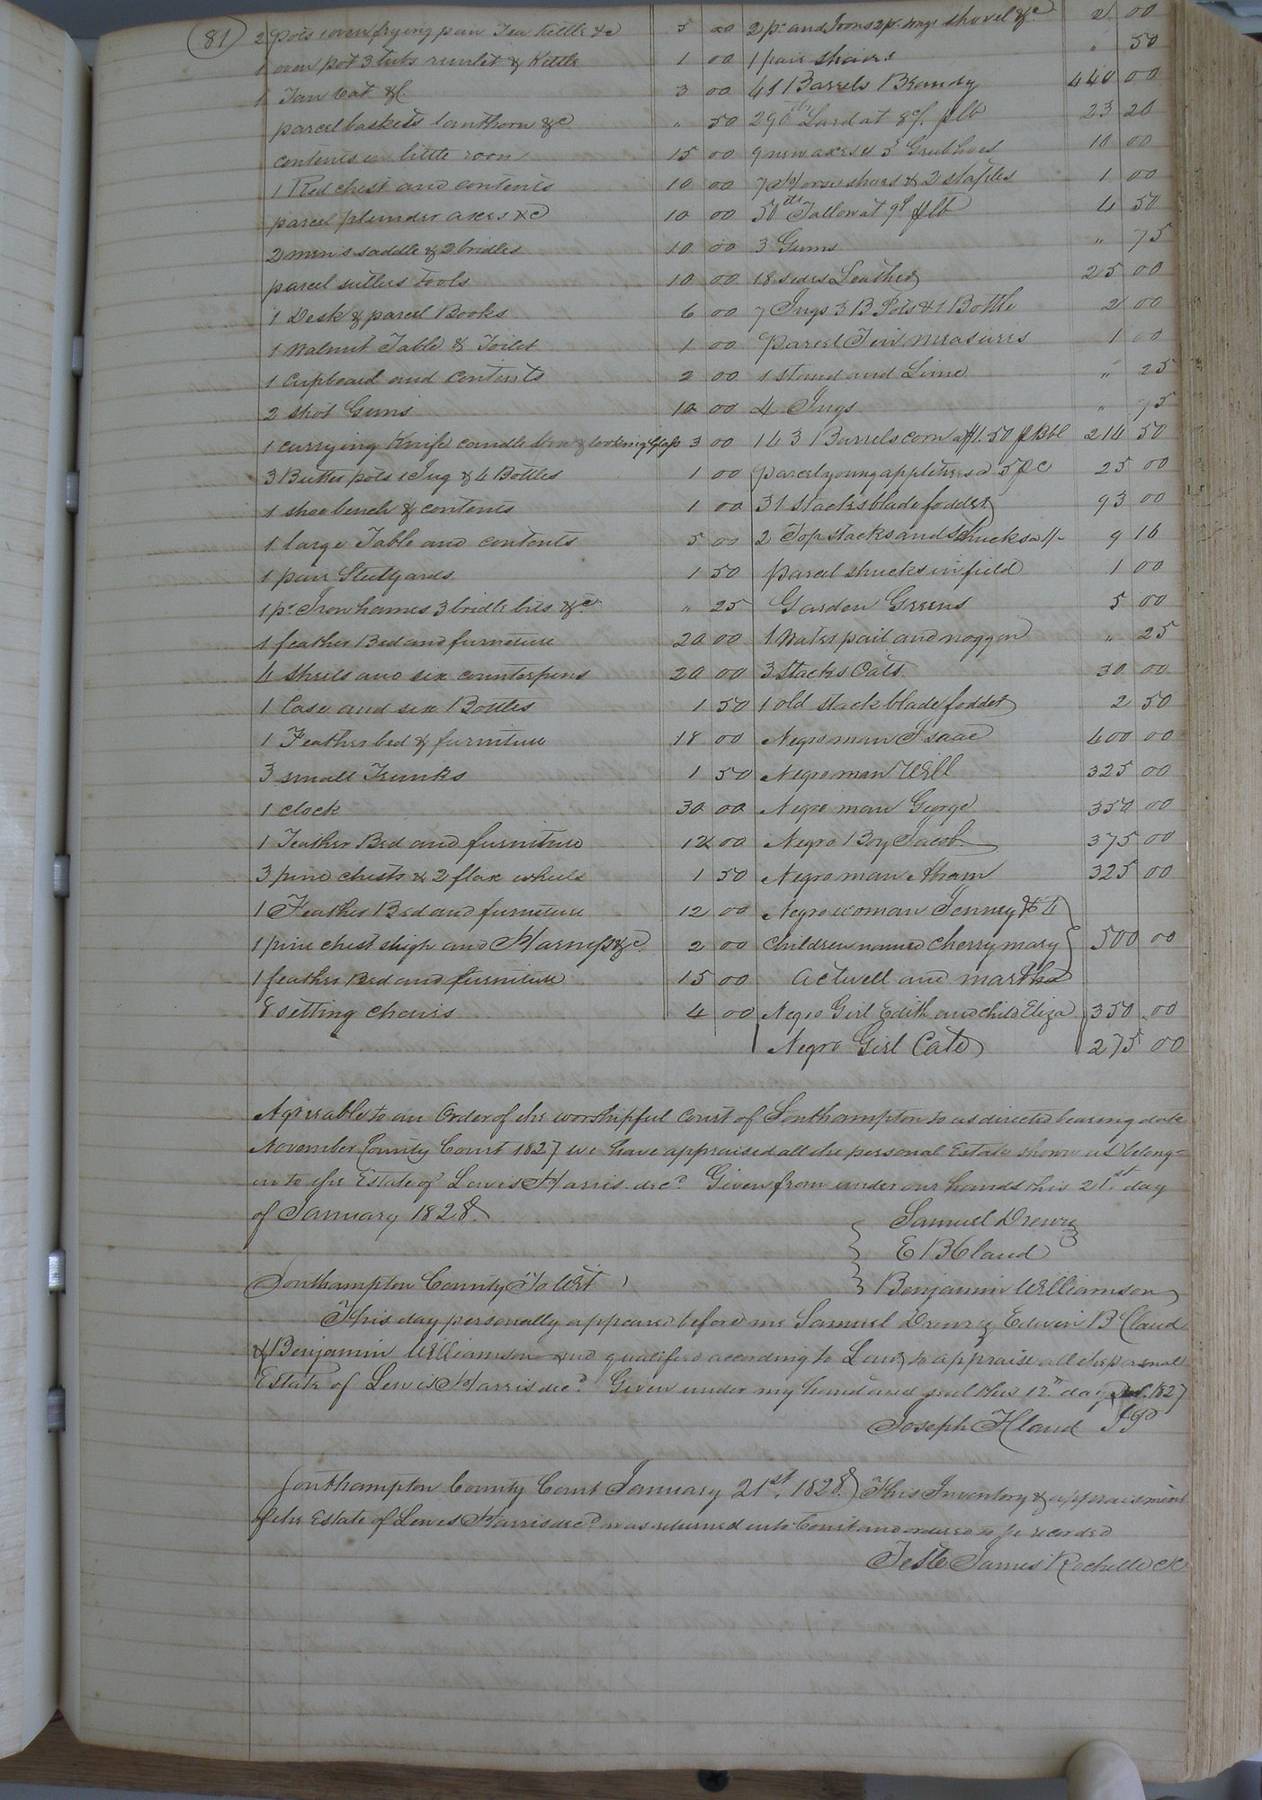 81
2 pots 1 oven frying pan Tea Kettle &c 5 00
1 oven pot 3 tubs runlet & Kettle 1 00
1 Tan Vat &C 3 00
parcel baskets lanthorn &c " 50
contents in little room 15 00
1 Red chest and contents 10 00
parcel plunder axes &c 10 00
2 men's saddle & 2 bridles 10 00
parcel sutlers tools 10 00
1 Desk & parcel Books 6 00
1 Walnut Table & Toilet 1 00
1 Cupboard and contents 2 00
2 shot Guns 10 00
1 carrying Knife candle looking Glass 3 00
3 Butter pots 1 Jug & 4 Bottles 1 00
1 shoe bench & contents 1 00
1 large Table and contents 5 00
1 pair Stilyards 1 50
1 pr Iron hames 3 bridle bits &c " 25
1 feather Bed and furniture 20 00
4 Sheets and six counterpins 20 00
1 Case and six Bottles 1 50
1 Feather bed & furniture 18 00
3 small Trunks 1 50
1 clock 30 00
1 Feather Bed and furniture 12 00
3 pine chests & 2 flax wheels 1 50
1 Feather Bed and furniture 12 00
1 pine chest sligh and Harness &c 2 00
1 feather Bed and furniture 15 00
8 setting chairs 4 00
2 pr and Irons 2 pr tongs shovel &c 2 00
1 pair shears " 50
41 Barrels Brandy 440 00
290 lbs Lard at 8 c/ p lb 23 20
9 new axes & 5 Grubhoes 10 00
7 pr Horse shoes & 2 staples 1 00
50 lbs Tallow at 9 c p lb 4 50
3 Gums " 75
18 sides Leather 25 00
7 Jugs 3 B Pots & 1 Bottle 2 00
parcel Tin measures 1 00
1 stand and Lime " 25
4 Jugs " 75
143 Barrels corn at $1.50 p Bbl 214 50
parcel young appletrees a 5 p c 25 00
31 stacks blade fodder 93 00
2 Top stacks and Shucks a 1/- 9 16
parcel shucks in field 1 00
Garden Greens 5 00
1 Water pail and noggon " 25
3 Stacks Oats 30 00
1 old stack blade fodder 2 50
Negro man Isaac 400 00
Negro man Will 325 00
Negro man George 350 00
Negro Boy Jacob 375 00
Negro man Abram 325 00
Negro woman Jenney & 4
children named Cherry mary 500 00
Actwell and martha
Negro Girl Edith and child Eliza 350 00
Negro Girl Cate 275 00
Agreeable to an Order of the worshipful Court of Southampton to us directed bearing date
November County Court 1827 we have appraised all the personal Estate shown us belong=
in to the Estate of Lewis Harris decd. Given from under our hands this 21st. day
of January 1828.
Samuel Drewry
E B Claud
Benjamin Williamson
Southampton County To Wit
This day personally appeared before me Samuel Drewry Edwin B Claud
& Benjamin Williamson and qualified according to Law to appraise all the personal
Estate of Lewis Harris decd. Given under my hand and seal this 12th day Dec. 1827
Joseph H Claud JP
Southampton County Court January 21st. 1828. This Inventory & appraisment
of the Estate of Lewis Harris decd was returned into Court and ordered to be recorded
Teste James Rochelle CK